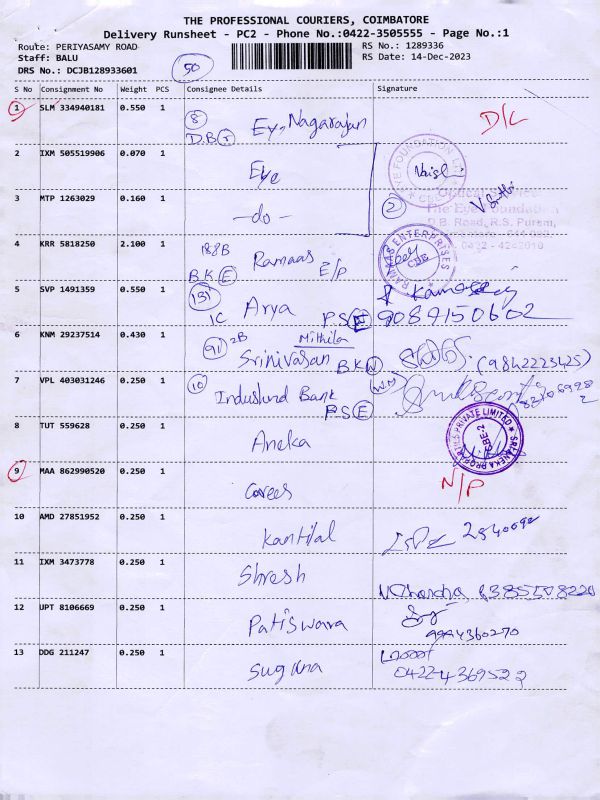 THE PROFESSIONAL COURIERS, COIMBATORE
Delivery Runsheet - PC2 - Phone No.:0422-3505555 - Page No.:1
Route: PERIYASAMY ROAD
RS No.: 1289336
Staff: BALU
RS Date: 14-Dec-2023
DRS No.: DCJB128933601
50
S No Consignment No Weight PCS Consignee Details Signature
1 SLM 334940181 0.550 1 8 Ex, Nagarajan D/C
D.B
2 IXM 505519906 0.070 1 Eye
EYE FOUNDATION
3 MTP 1263029 0.160 1 -do- 2
The Eye Foundation
D.B. Road, R.S. Puram,
4 KRR 5818250 2.100 1 188B Ramaas E/P
B.K E
RAMKAS ENTERPRISES
CBE
5 SVP 1491359 0.550 1 131 Arya
1C P.S E 9089150602
6 KNM 29237514 0.430 1 91 2B Mithila
Srinivasan B.K W (9842223425)
7 VPL 403031246 0.250 1 10 Indusland Bank
P.S E
8 TUT 559628 0.250 1 Aneka
PRIVATE LIMITED
CBE-2
9 MAA 862990520 0.250 1 Carees N/P
10 AMD 27851952 0.250 1 Kantilal
11 IXM 3473778 0.250 1 Shresh
N Chandra 6385508220
12 UPT 8106669 0.250 1 Patiswara
9994360270
13 DDG 211247 0.250 1 Suguna
0422-4369522